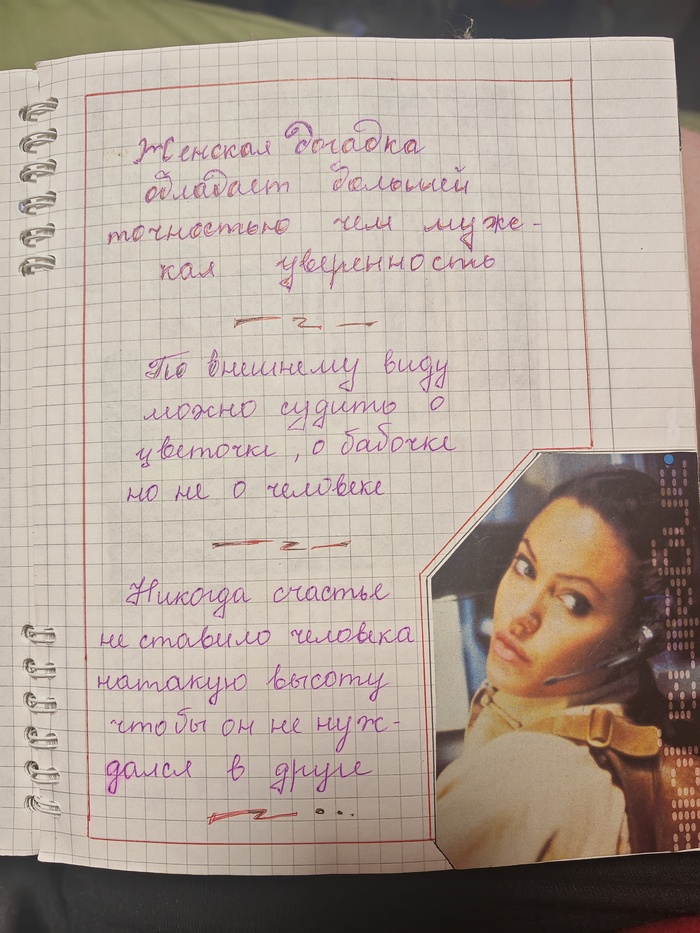 Женская догадка
обладает большей
точностью чем мужс-
кая уверенность
По внешнему виду
можно судить о
цветочке, о бабочке
но не о человеке
Никогда счастье
не ставило человека
натакую высоту
чтобы он не нуж-
дался в друге